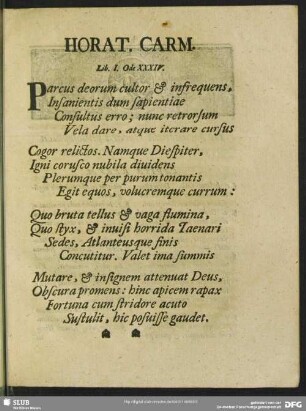 HORAT. CARM.
Lib. I. Ode XXXIV.
Parcus deorum cultor & infrequens,
Insanientis dum sapientiae
Consultus erro; nunc retrorsum
Vela dare, atque iterare cursus
Cogor relictos. Namque Diespiter,
Igni corusco nubila diuidens
Plerumque per purum tonantis
Egit equos, volucremque currum:
Quo bruta tellus & vaga flumina,
Quo styx, & inuisi horrida Taenari
Sedes, Atlanteusque finis
Concutitur. Valet ima summis
Mutare, & insignem attenuat Deus,
Obscura promens: hinc apicem rapax
Fortuna cum stridore acuto
Sustulit, hic posuisse gaudet.
SLUB
DFG